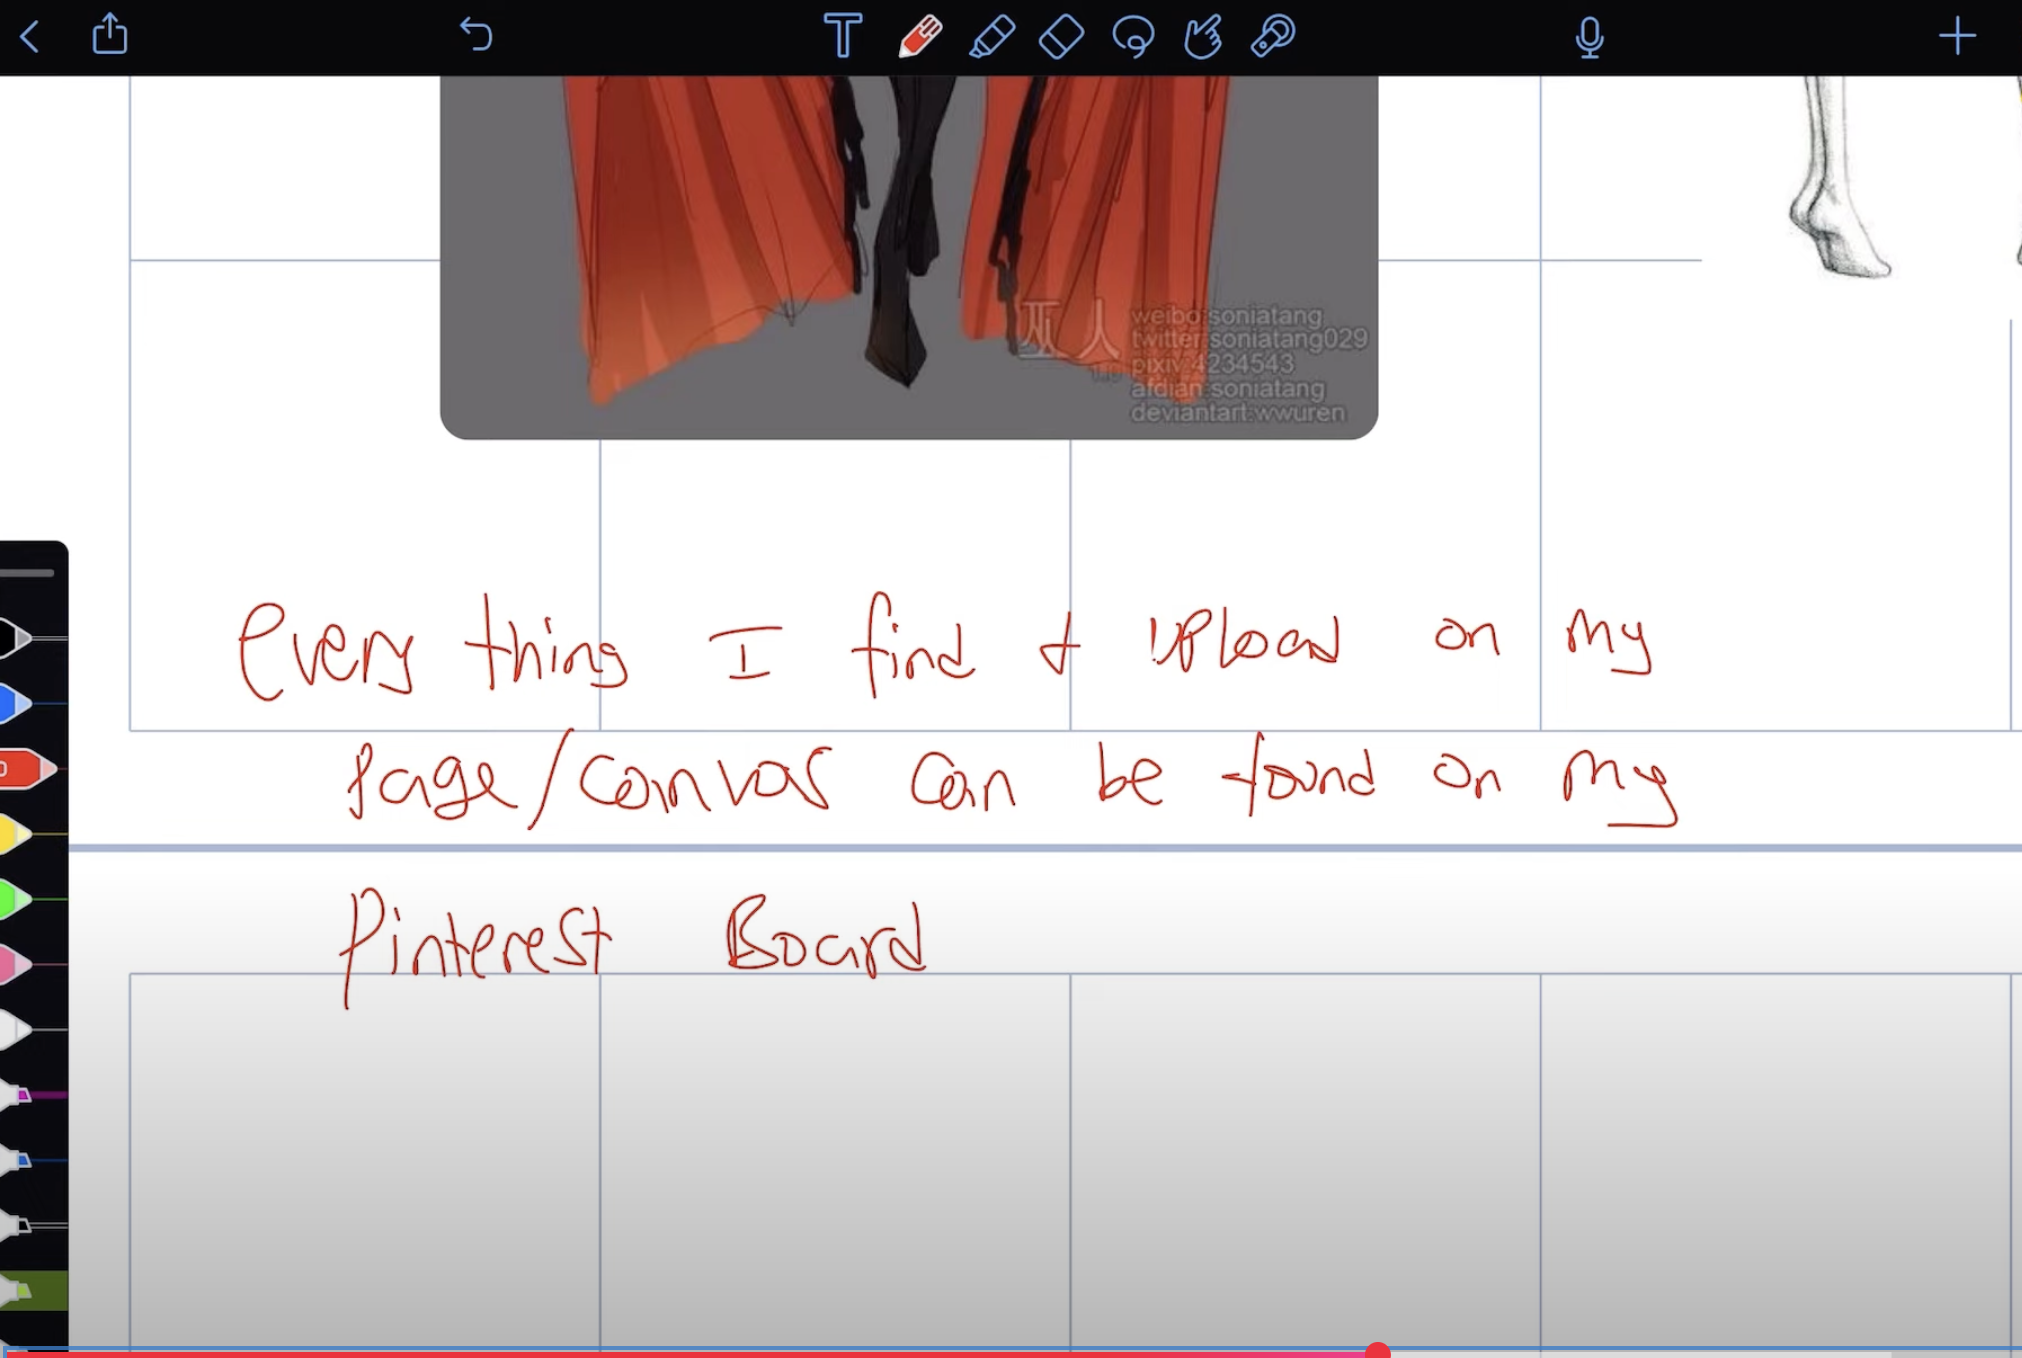 巫人
weibo:soniatang
twitter:soniatang029
pixiv:4234543
afdian:soniatang
deviantart:wwuren
Every thing I find & upload on my
Page/canvas can be found on my
Pinterest Board